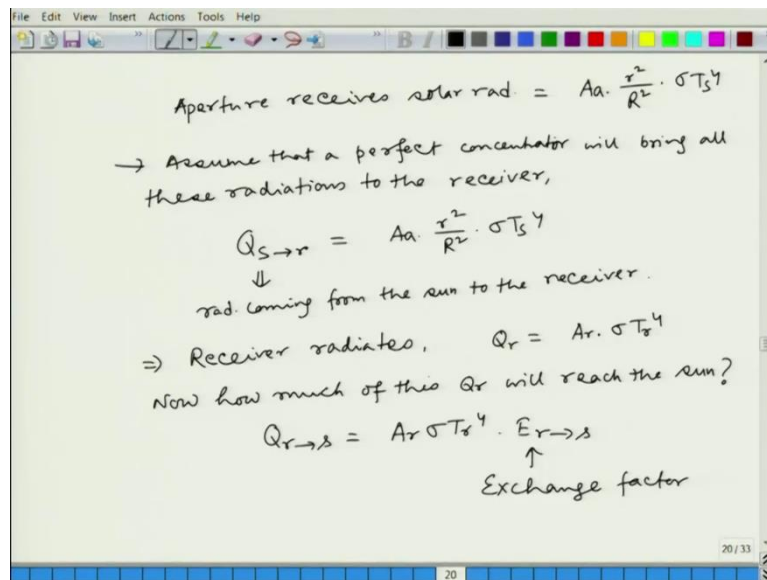 File Edit View Insert Actions Tools Help
B I
Aperture receives solar rad. = Aa. r²/R² · σTs⁴
→ Assume that a perfect concentrator will bring all
these radiations to the receiver,
Qs→r = Aa. r²/R² · σTs⁴
⇓
rad. coming from the sun to the receiver.
⇒ Receiver radiates, Qr = Ar. σTr⁴
Now how much of this Qr will reach the sun?
Qr→s = Ar σTr⁴ . Er→s
↑
Exchange factor
20/33
20